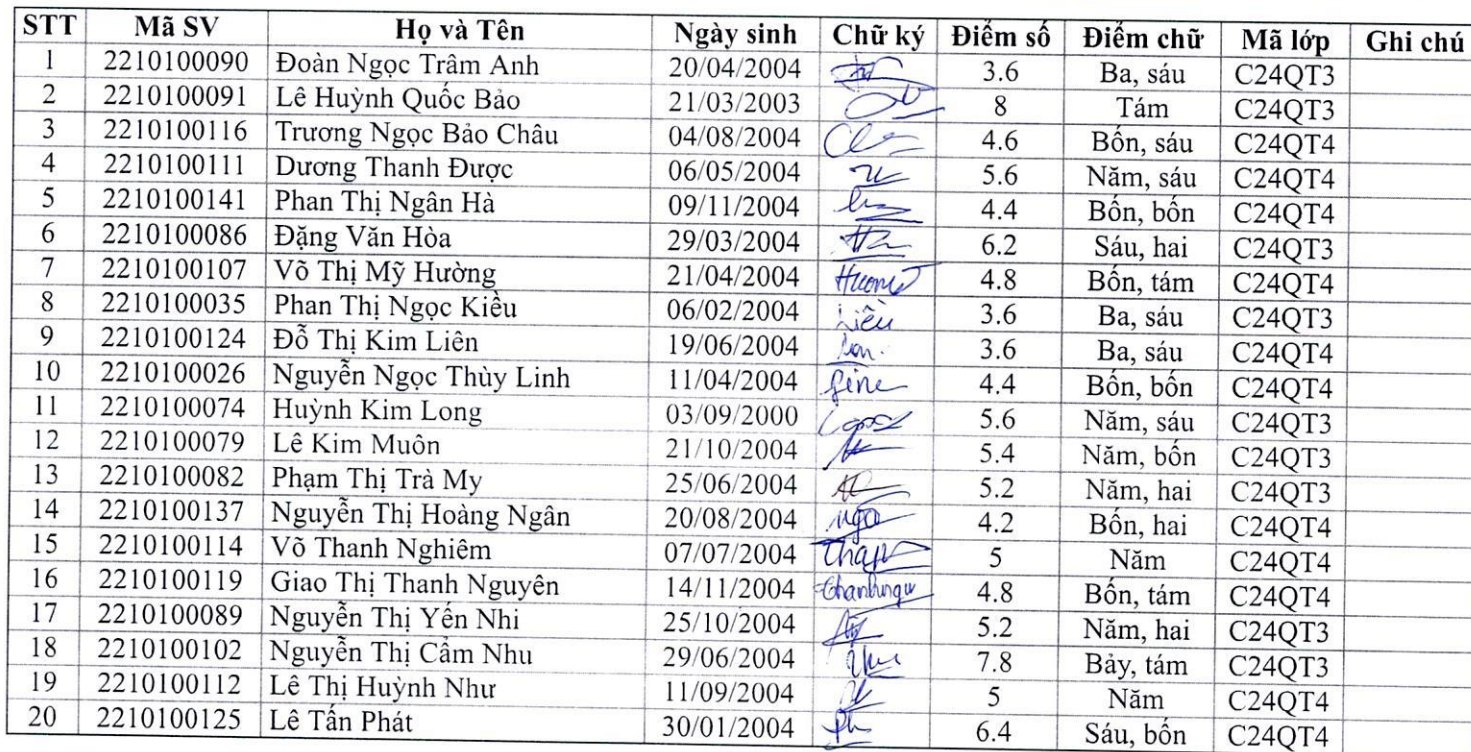 STT Mã SV Họ và Tên Ngày sinh Chữ ký Điểm số Điểm chữ Mã lớp Ghi chú
1 2210100090 Đoàn Ngọc Trâm Anh 20/04/2004 3.6 Ba, sáu C24QT3
2 2210100091 Lê Huỳnh Quốc Bảo 21/03/2003 8 Tám C24QT3
3 2210100116 Trương Ngọc Bảo Châu 04/08/2004 4.6 Bốn, sáu C24QT4
4 2210100111 Dương Thanh Được 06/05/2004 5.6 Năm, sáu C24QT4
5 2210100141 Phan Thị Ngân Hà 09/11/2004 4.4 Bốn, bốn C24QT4
6 2210100086 Đặng Văn Hòa 29/03/2004 6.2 Sáu, hai C24QT3
7 2210100107 Võ Thị Mỹ Hường 21/04/2004 4.8 Bốn, tám C24QT4
8 2210100035 Phan Thị Ngọc Kiều 06/02/2004 3.6 Ba, sáu C24QT3
9 2210100124 Đỗ Thị Kim Liên 19/06/2004 3.6 Ba, sáu C24QT4
10 2210100026 Nguyễn Ngọc Thùy Linh 11/04/2004 4.4 Bốn, bốn C24QT4
11 2210100074 Huỳnh Kim Long 03/09/2000 5.6 Năm, sáu C24QT3
12 2210100079 Lê Kim Muôn 21/10/2004 5.4 Năm, bốn C24QT3
13 2210100082 Phạm Thị Trà My 25/06/2004 5.2 Năm, hai C24QT3
14 2210100137 Nguyễn Thị Hoàng Ngân 20/08/2004 4.2 Bốn, hai C24QT4
15 2210100114 Võ Thanh Nghiêm 07/07/2004 5 Năm C24QT4
16 2210100119 Giao Thị Thanh Nguyên 14/11/2004 4.8 Bốn, tám C24QT4
17 2210100089 Nguyễn Thị Yến Nhi 25/10/2004 5.2 Năm, hai C24QT3
18 2210100102 Nguyễn Thị Cẩm Nhu 29/06/2004 7.8 Bảy, tám C24QT3
19 2210100112 Lê Thị Huỳnh Như 11/09/2004 5 Năm C24QT4
20 2210100125 Lê Tấn Phát 30/01/2004 6.4 Sáu, bốn C24QT4